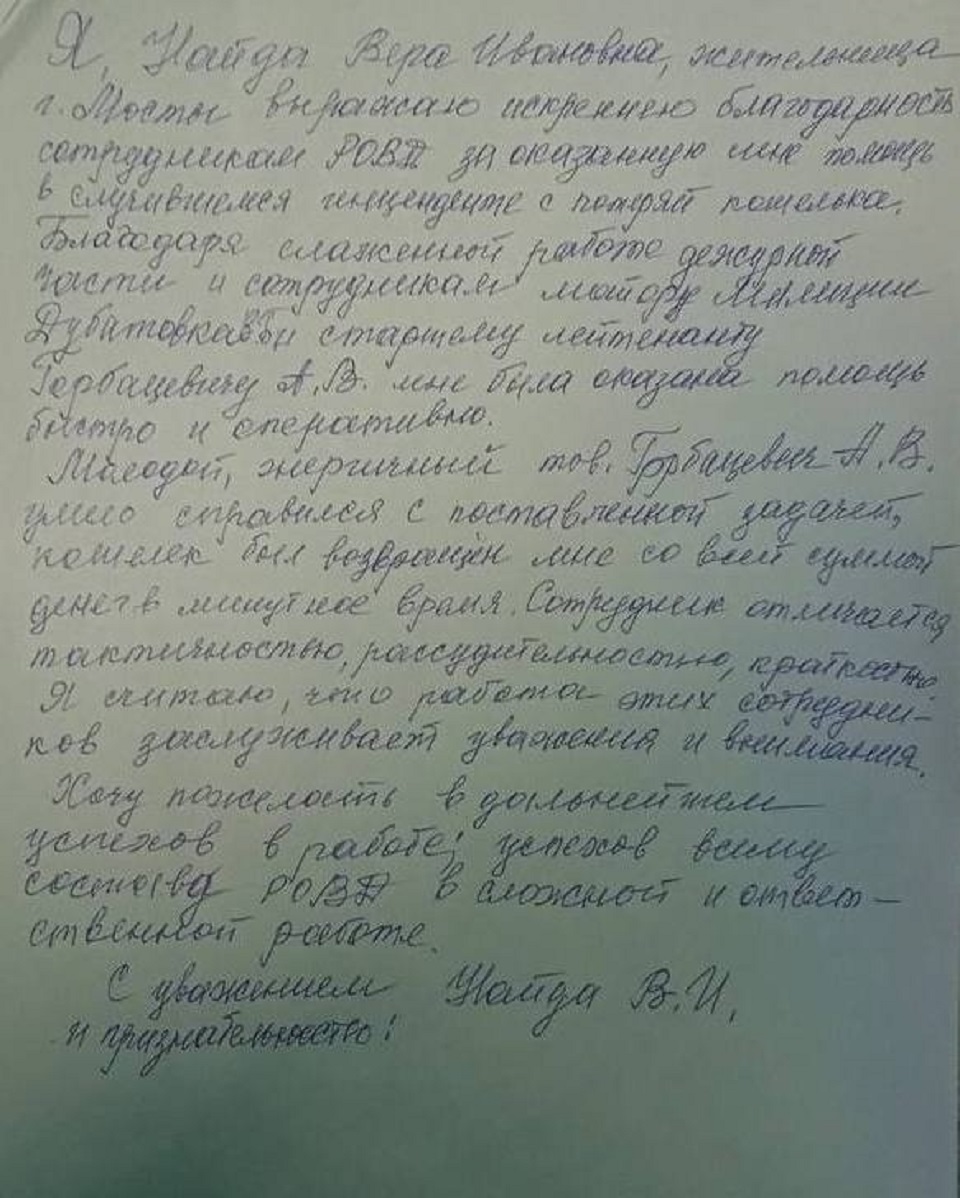 Я, Найда Вера Ивановна, жительница
г. Мосты выражаю искреннею благодарность
сотрудникам РОВД за оказанную мне помощь
в случившемся инценденте с потеряй кошелька.
Благодаря слаженной работе дежурной
части и сотрудникам майору милиции
Дубатовка старшему лейтенанту
Горбацевичу А.В. мне была оказана помощь
быстро и оперативно.
Молодой, энергичный тов. Горбацевич А.В.
умело справился с поставленной задачей,
кошелек был возвращён мне со всей суммой
денег в минутное время. Сотрудник отличается
тактичностью, рассудительностью, краткостью
Я считаю, что работа этих сотрудни-
ков заслуживает уважения и внимания.
Хочу пожелать в дальнейшем
успехов в работе; успехов всему
составу РОВД в сложной и ответ-
ственной работе.
С уважением Найда В.И.
и признательностью!